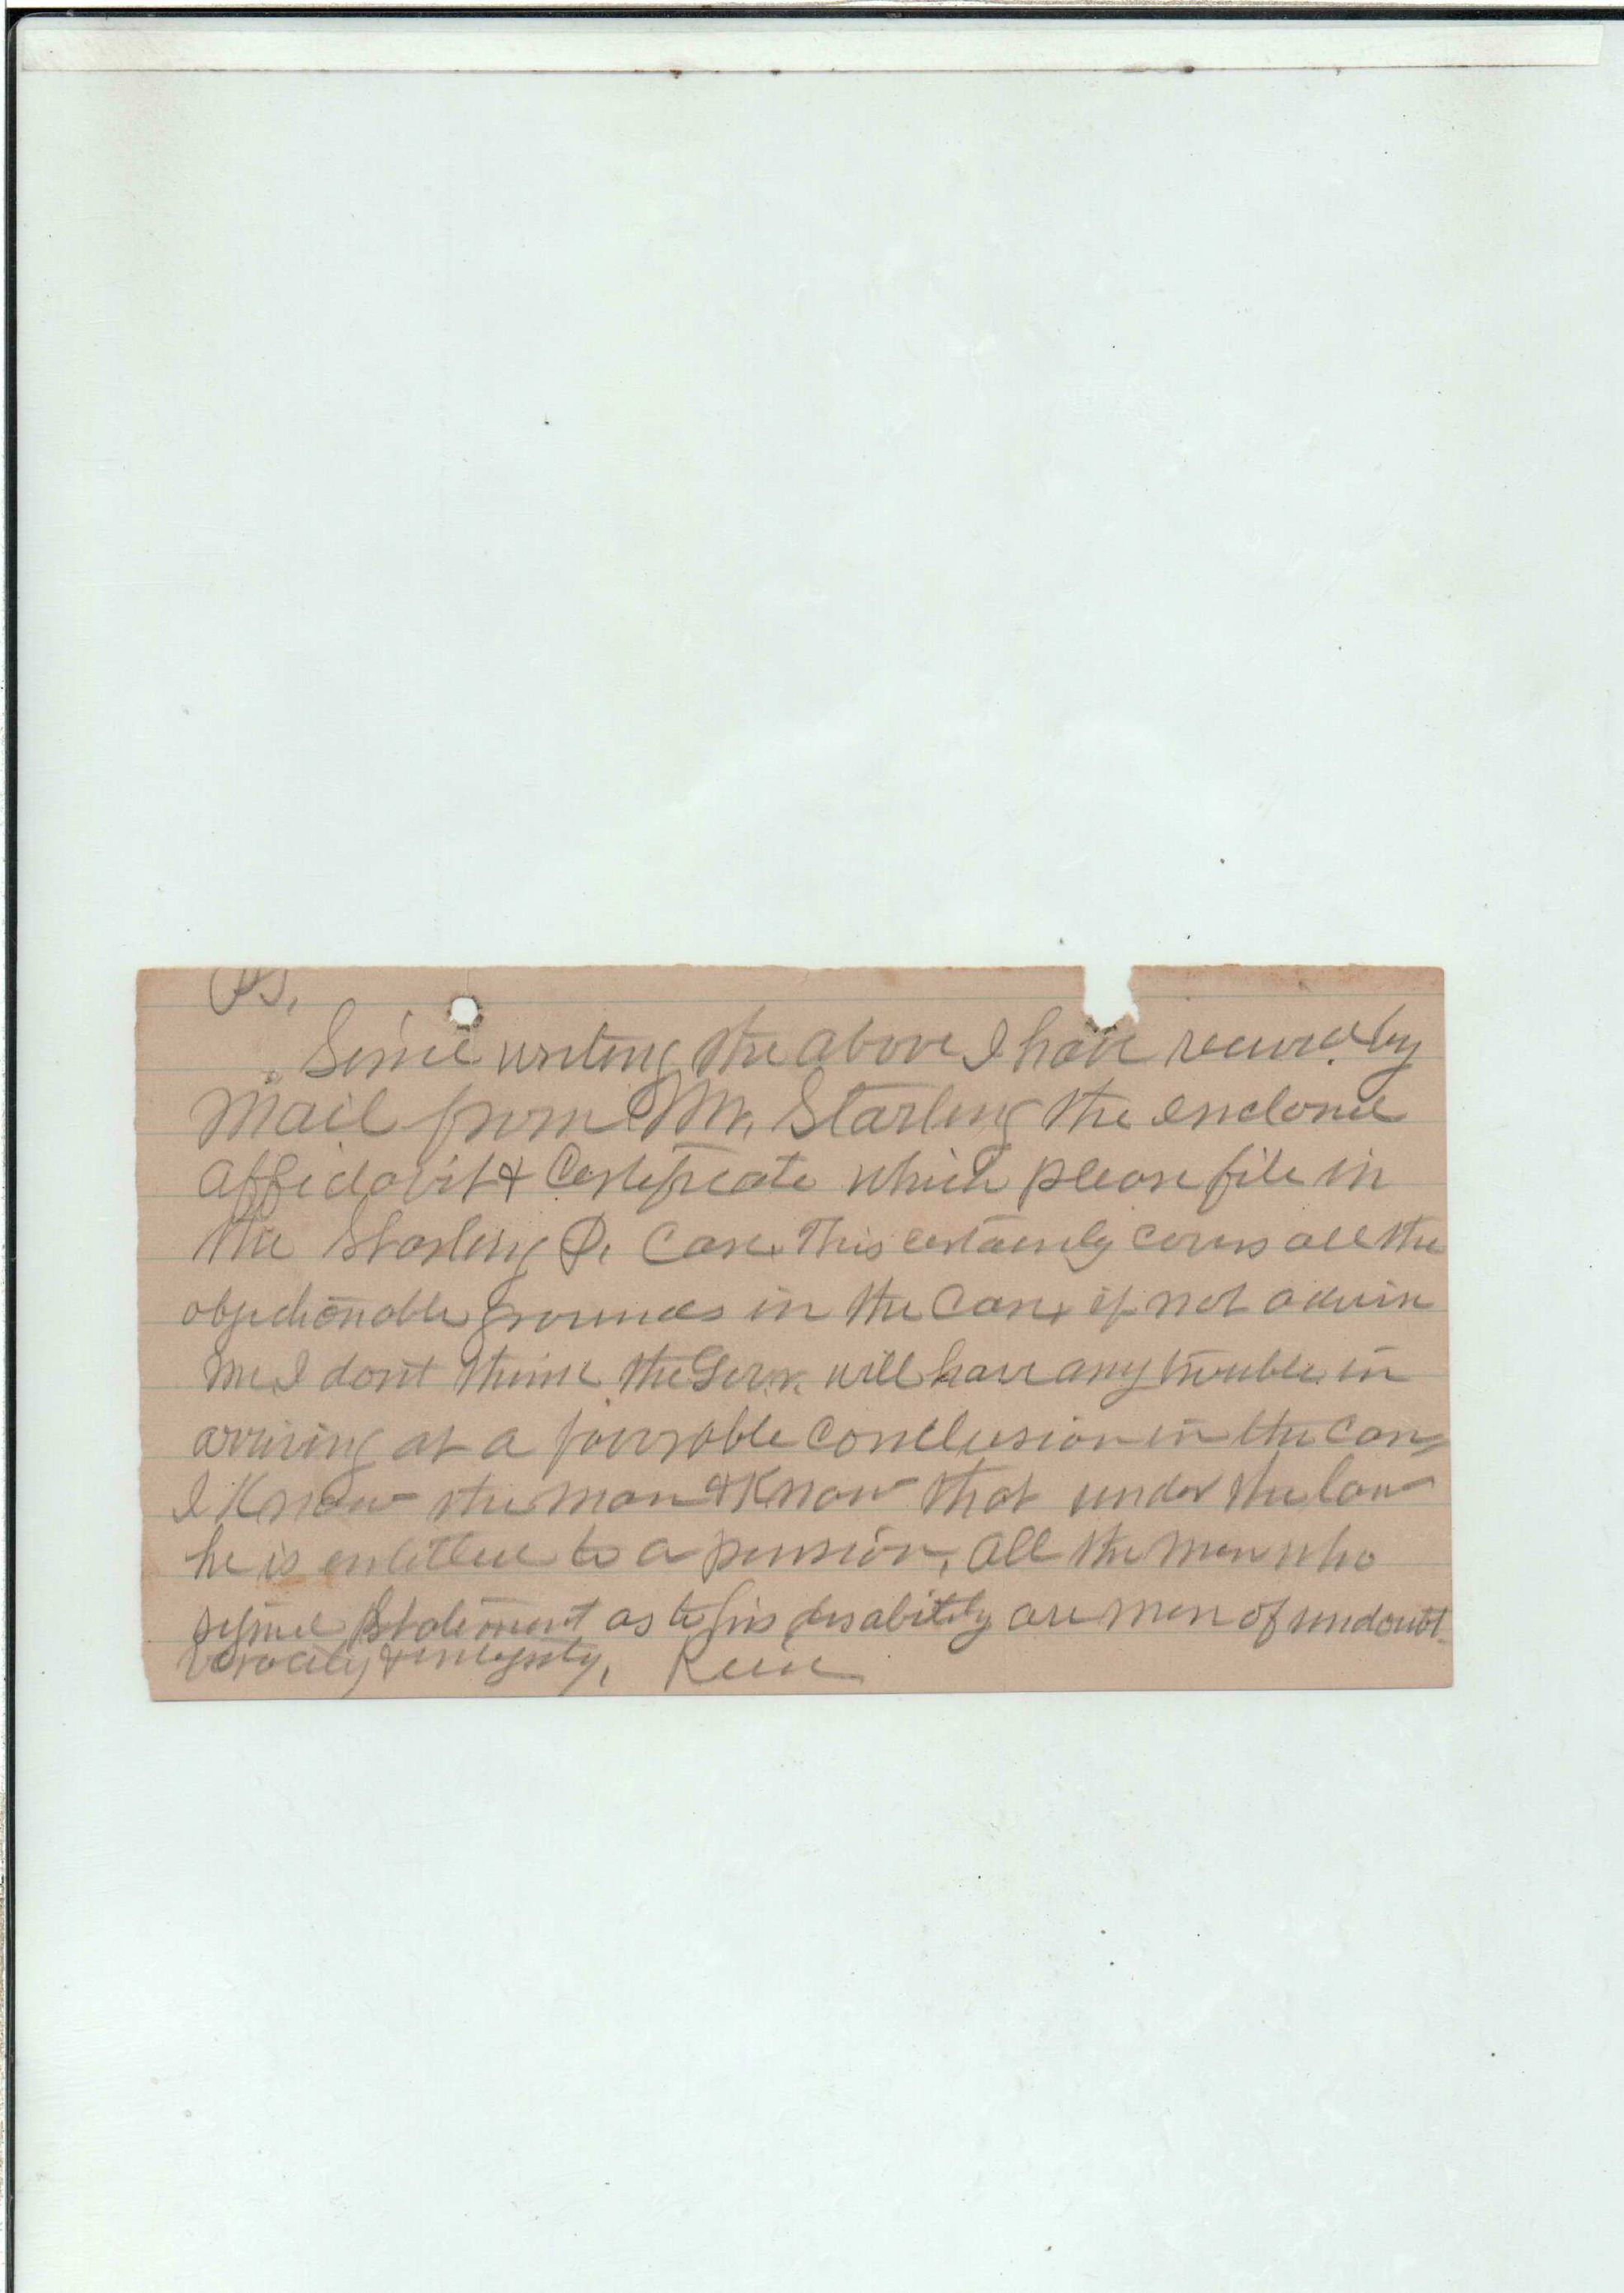 P.S.
Since writing the above I have received by
mail from Mr. Starling the enclosed
affidavit & Certificate which please file in
the Starling P. Case. This certainly covers all the
objectionable grounds in the case, if not advise
me, I dont think the Govr. will have any trouble in
arriving at a favorable conclusion in the case
I know the man & know that under the law
he is entitled to a pension, all the men who
signed statement as to his disability are men of undoubt.
veracity & integrity,